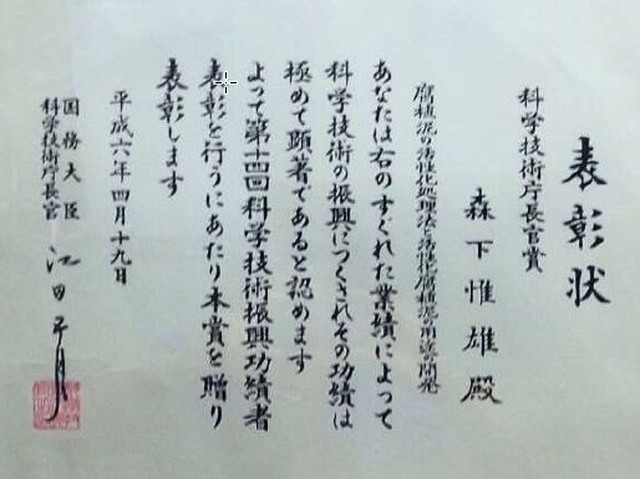 表彰状
科学技術庁長官賞
森下惟雄殿
腐植泥の活性化処理法と活性化腐植泥の用途の開発
あなたは右のすぐれた業績によって
科学技術の振興につくされその功績は
極めて顕著であると認めます
よって第十四回科学技術振興功績者
表彰を行うにあたり本賞を贈り
表彰します
平成六年四月十九日
国務大臣
科学技術庁長官 江田五月